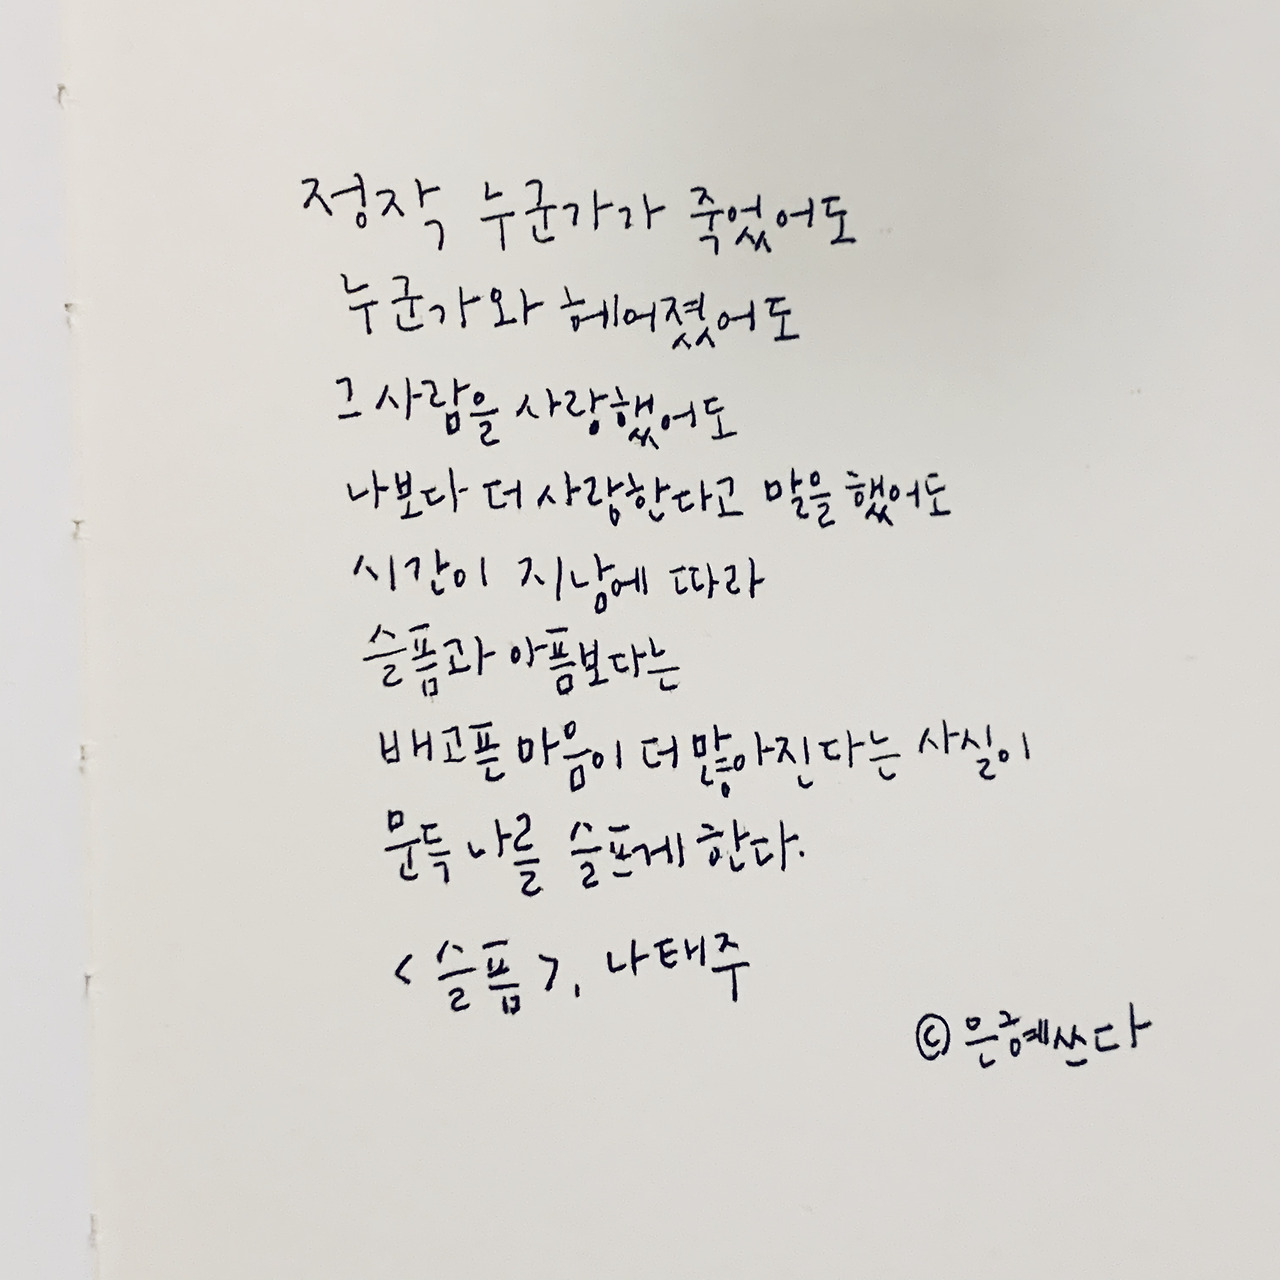 정작 누군가가 죽었어도
누군가와 헤어졌어도
그 사람을 사랑했어도
나보다 더 사랑한다고 말을 했어도
시간이 지남에 따라
슬픔과 아픔보다는
배고픈 마음이 더 많아진다는 사실이
문득 나를 슬프게 한다.
<슬픔>, 나태주
© 은혜쓰다